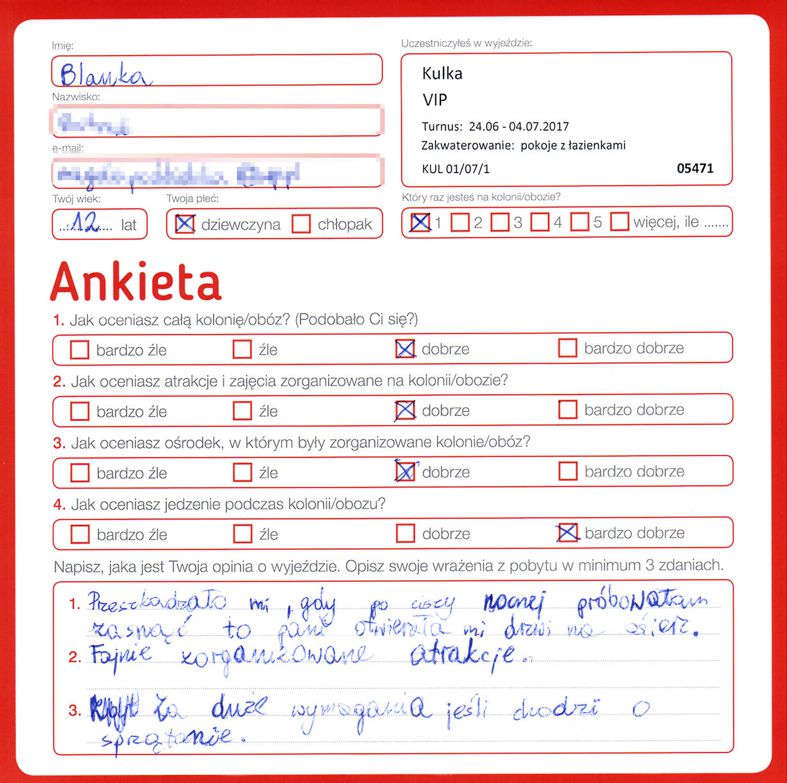 Imię:
Uczestniczyłeś w wyjeździe:
Blanka
Kulka
VIP
Nazwisko:
Turnus: 24.06 - 04.07.2017
e-mail:
Zakwaterowanie: pokoje z łazienkami
KUL 01/07/1 05471
Twój wiek:
Twoja płeć:
Który raz jesteś na kolonii/obozie?
12 lat
dziewczyna chłopak
1 2 3 4 5 więcej, ile .......
Ankieta
1. Jak oceniasz całą kolonię/obóz? (Podobało Ci się?)
bardzo źle źle dobrze bardzo dobrze
2. Jak oceniasz atrakcje i zajęcia zorganizowane na kolonii/obozie?
bardzo źle źle dobrze bardzo dobrze
3. Jak oceniasz ośrodek, w którym były zorganizowane kolonie/obóz?
bardzo źle źle dobrze bardzo dobrze
4. Jak oceniasz jedzenie podczas kolonii/obozu?
bardzo źle źle dobrze bardzo dobrze
Napisz, jaka jest Twoja opinia o wyjeździe. Opisz swoje wrażenia z pobytu w minimum 3 zdaniach.
1. Przeszkadzało mi, gdy po ciszy nocnej próbowałam
zasnąć to pani otwierała mi drzwi na oścież.
2. Fajnie zorganizowane atrakcje.
3. Za duże wymagania jeśli chodzi o
sprzątanie.